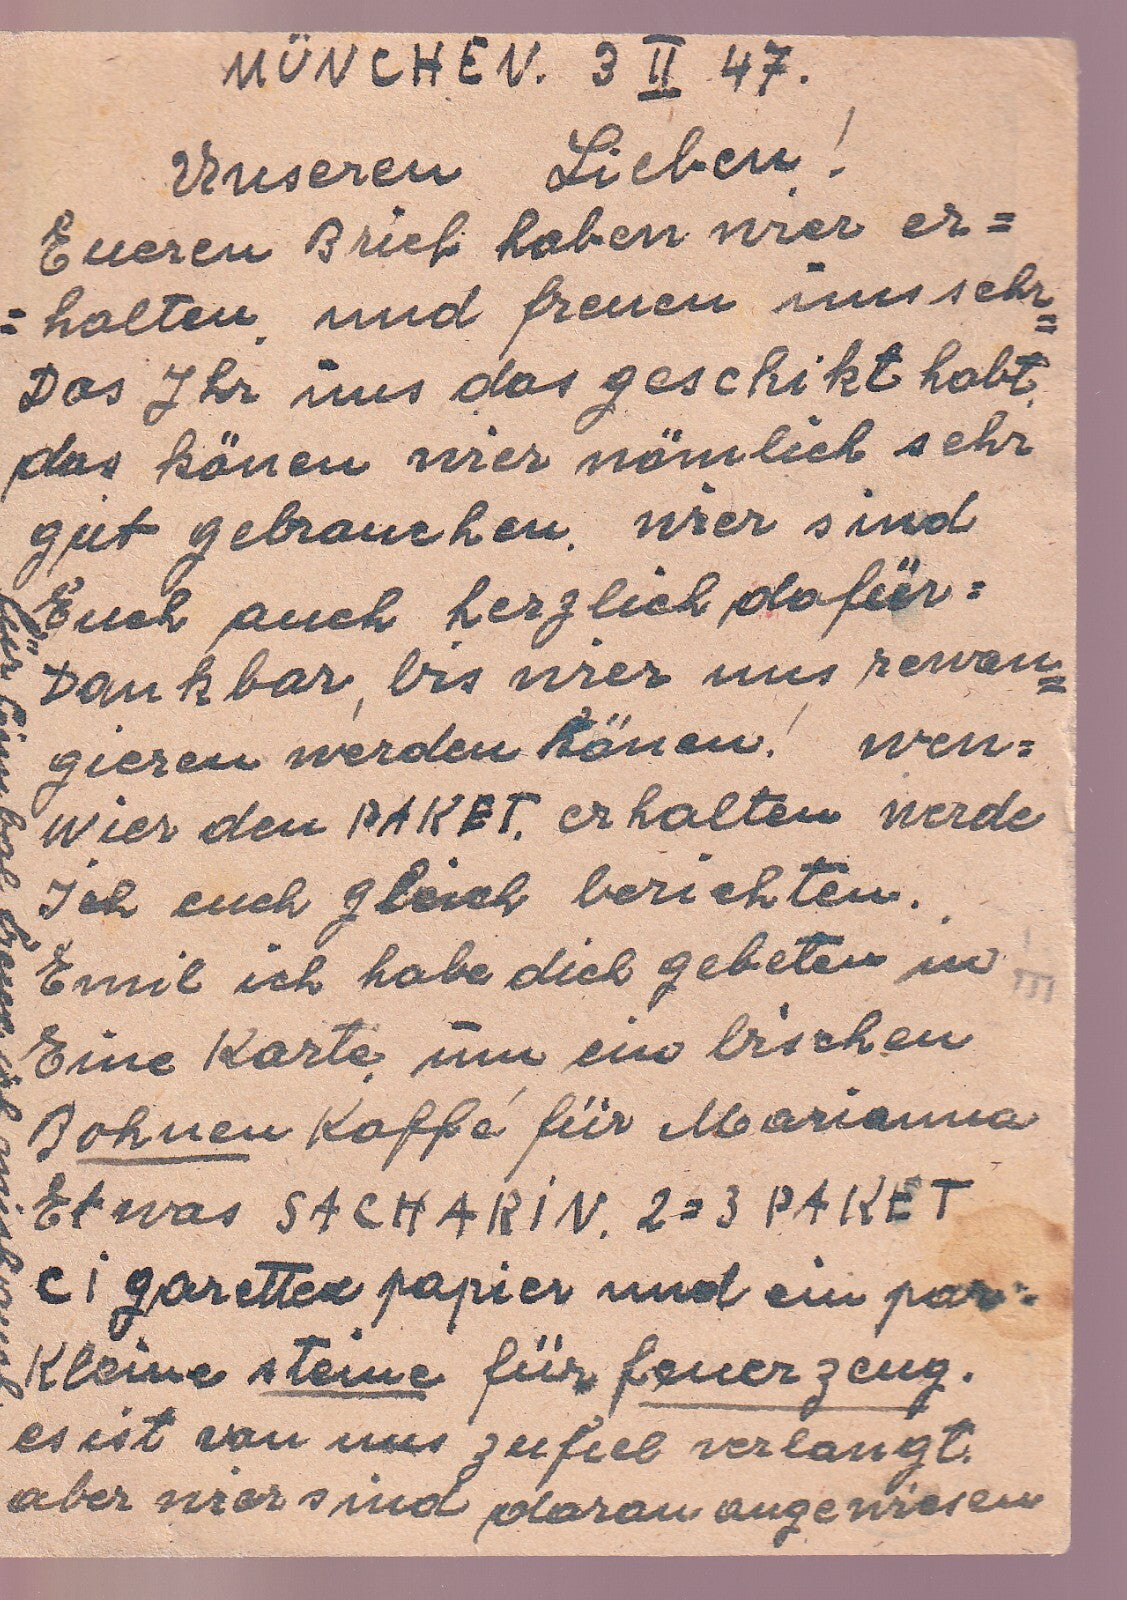 MÜNCHEN. 3 II 47.
Unseren Lieben!
Eueren Brief haben wier er=
=halten, und freuen uns sehr=
Das Ihr uns das geschikt habt,
das könen wier nämlich sehr
gut gebrauchen. wier sind
Euch auch herzlich dafür=
Dankbar, bis wier uns rewan=
gieren werden könen! wen=
wier den PAKET. erhalten werde
Ich euch gleich berichten.
Emil ich habe dich gebeten in
Eine Karte, um ein bischen
Bohnen Kaffé für Marianna
Etwas SACHARIN. 2=3 PAKET
Cigaretten papier und ein par=
Kleine steine für feuerzeug.
es ist von uns zufiel verlangt.
aber wier sind daran angewiesen